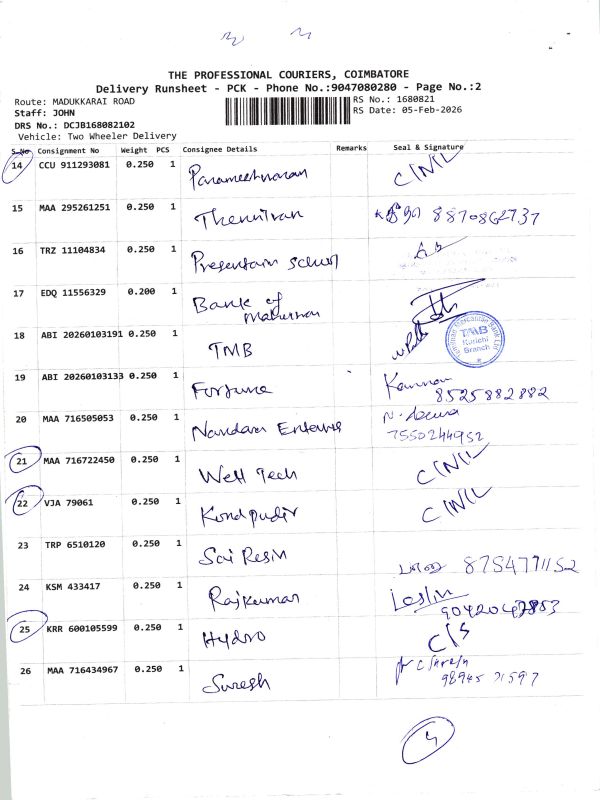 THE PROFESSIONAL COURIERS, COIMBATORE
Delivery Runsheet - PCK - Phone No.:9047080280 - Page No.:2
Route: MADUKKARAI ROAD
Staff: JOHN
DRS No.: DCJB168082102
Vehicle: Two Wheeler Delivery
RS No.: 1680821
RS Date: 05-Feb-2026
S.No Consignment No Weight PCS Consignee Details Remarks Seal & Signature
14 CCU 911293081 0.250 1 Parameshwaran
15 MAA 295261251 0.250 1 8870862737
16 TRZ 11104834 0.250 1
17 EDQ 11556329 0.200 1 Bank of
18 ABI 20260103191 0.250 1 TMB TMB Kurichi Branch
19 ABI 20260103133 0.250 1 Fortune Kannan 8525882882
20 MAA 716505053 0.250 1 7550244952
21 MAA 716722450 0.250 1 Well Tech
22 VJA 79061 0.250 1
23 TRP 6510120 0.250 1 Sai Resin
24 KSM 433417 0.250 1 Rajkumar
25 KRR 600105599 0.250 1 Hydro C/S
26 MAA 716434967 0.250 1 Suresh